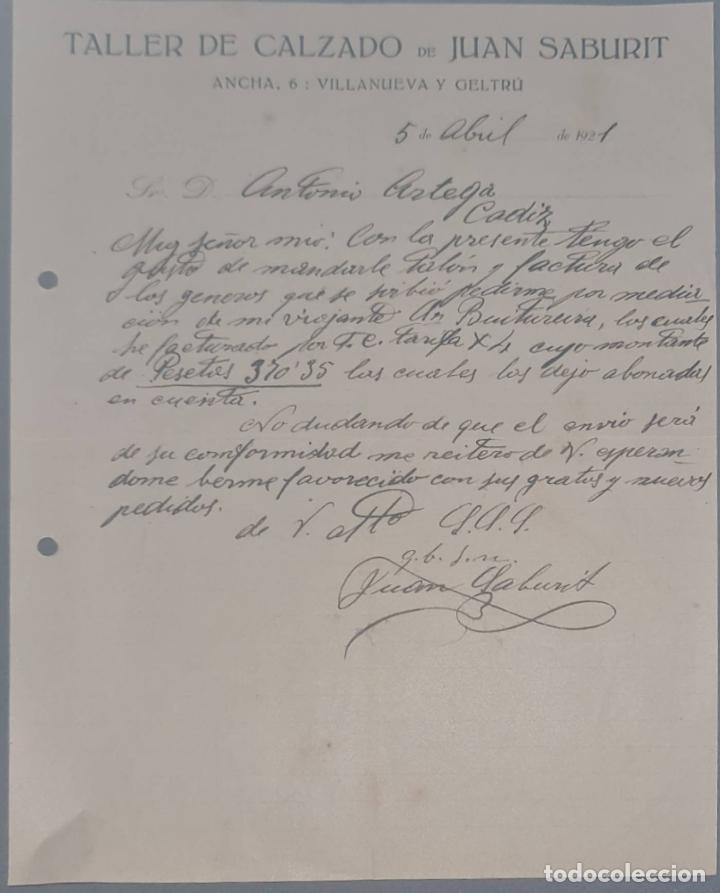 TALLER DE CALZADO DE JUAN SABURIT
ANCHA, 6 : VILLANUEVA Y GELTRÚ
5 de Abril de 1921
Sr. D. Antonio Artega
Cadiz
Muy señor mio: Con la presente tengo el
gusto de mandarle talón y factura de
los generos que se sirbió pedirme por media
ción de mi viajante Sr. los cuales
he facturado por F. C. tarifa X 4 cuyo montante
de Pesetas 370'35 las cuales los dejo abonadas
en cuenta.
No dudando de que el envio será
de su conformidad me reitero de V. esperan-
dome berme favorecido con sus gratos y nuevos
pedidos.
de V. atto S.S.S.
q. b. s. m.
Juan Saburit
todocoleccion